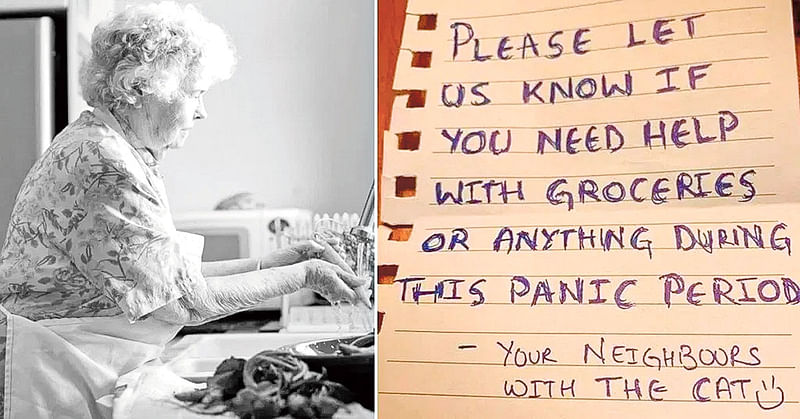 PLEASE LET
US KNOW IF
YOU NEED HELP
WITH GROCERIES
OR ANYTHING DURING
THIS PANIC PERIOD
- YOUR NEIGHBOURS
WITH THE CAT